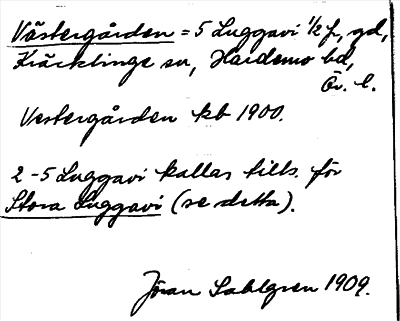 Västergården = 5 Luggavi 1/2 f., gd,
Kräcklinge sn, Hardemo hd,
Ör. l.
Vestergården kb 1900.
2-5 Luggavi kallas tills. för
Stora Luggavi (se detta).
Jöran Sahlgren 1909.